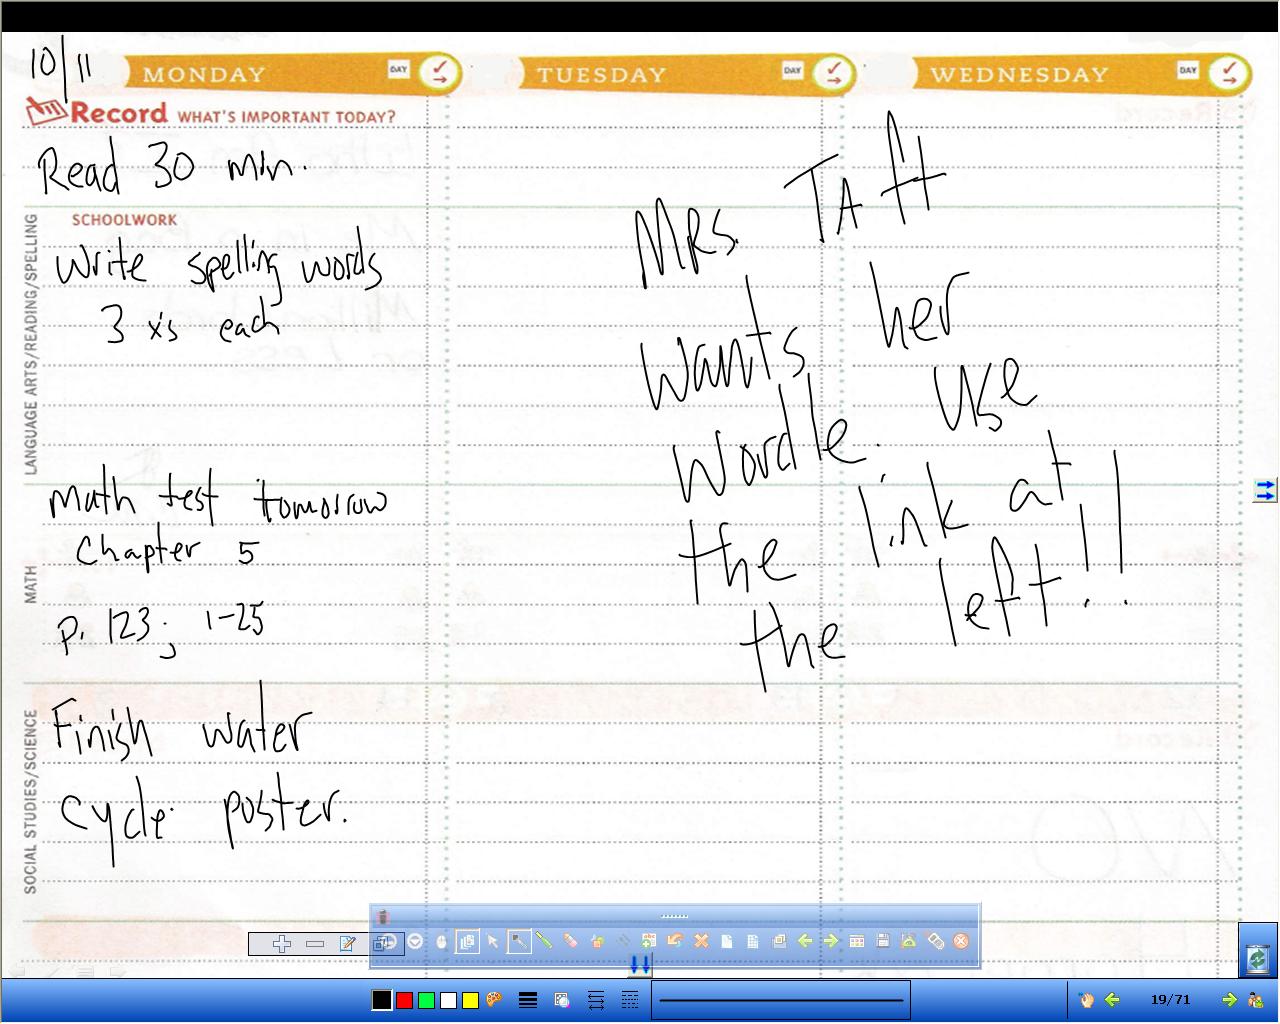 10/11
MONDAY DAY
TUESDAY DAY
WEDNESDAY DAY
Record WHAT'S IMPORTANT TODAY?
Read 30 min.
LANGUAGE ARTS/READING/SPELLING
SCHOOLWORK
Write spelling words
3 x's each
MATH
Math test tomorrow
Chapter 5
p. 123; 1-25
SOCIAL STUDIES/SCIENCE
Finish water
cycle poster.
Mrs. Taft
wants her
Wordle. Use
the link at
the left!!
19/71